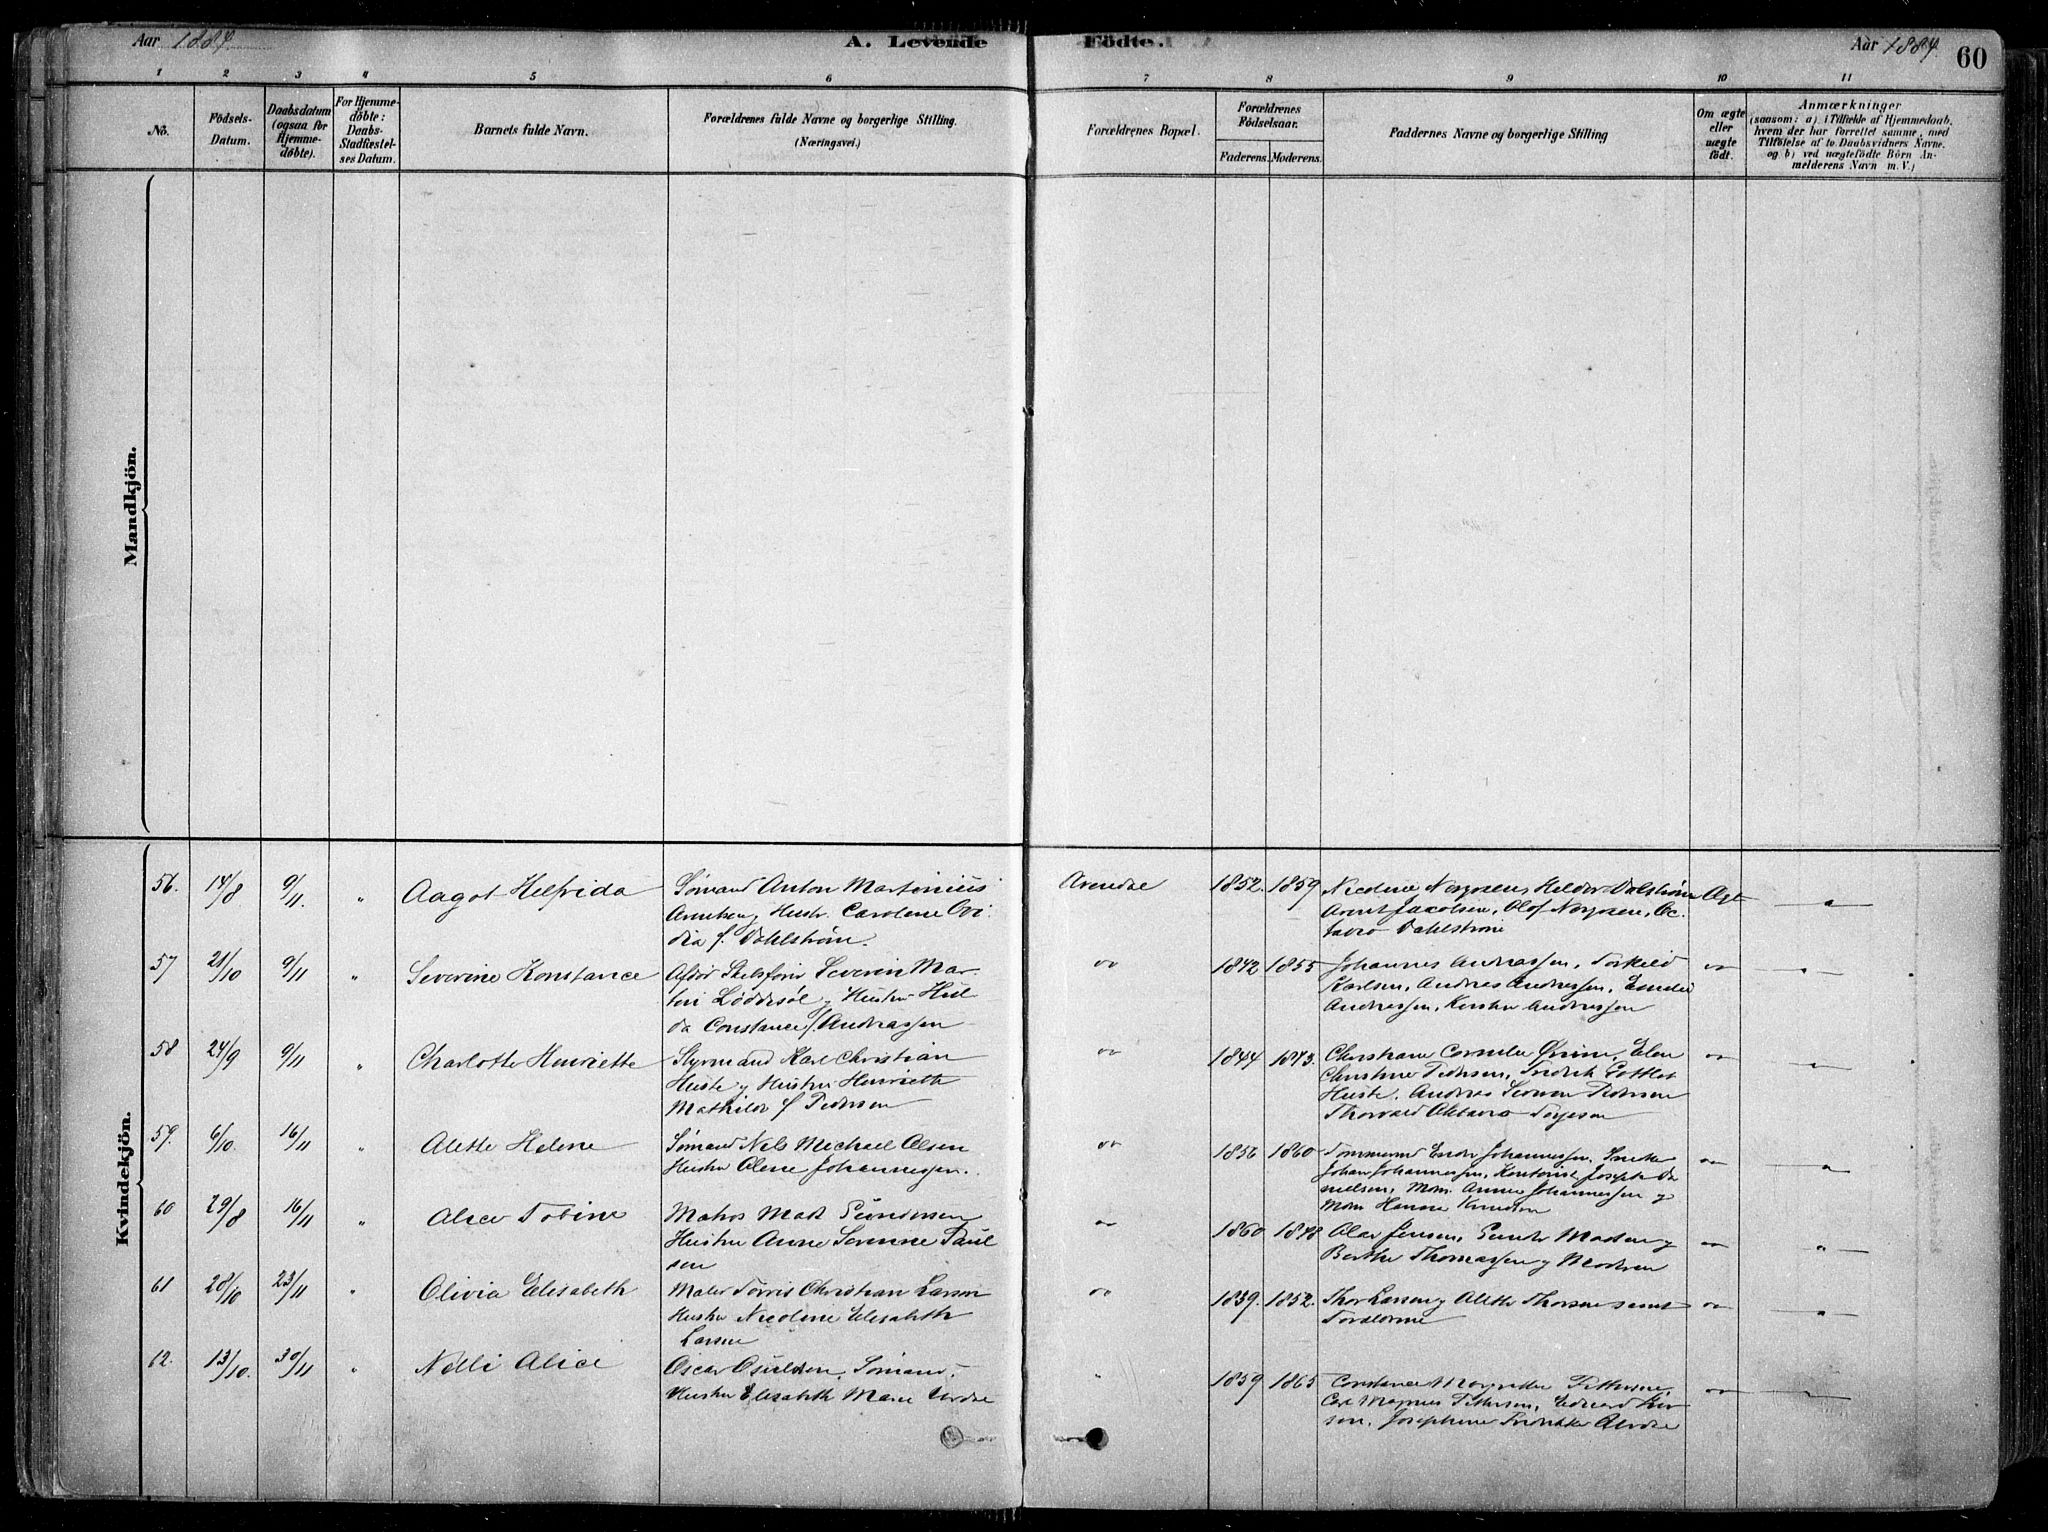 Aar 1884.
A. Levende
Födte.
Aar 1884.
60
1 2 3 4 5 6 7 8 9 10 11
No.
Födsels-
Datum.
Daabsdatum
(ogsaa for
Hjemme-
døbte).
For Hjemme-
døbte:
Daabs-
Stadfæstel-
ses Datum.
Barnets fulde Navn.
Forældrenes fulde Navne og borgerlige Stilling.
(Næringsvei.)
Forældrenes Bopæl.
Forældrenes
Födselsaar.
Faderens. Moderens.
Faddernes Navne og borgerlige Stilling
Om ægte
eller
uægte
födt.
Anmærkninger
(saasom: a) i Tilfælde af Hjemmedaab,
hvem der har forrettet samme, med
Tilföielse af to Daabsvidners Navne.
og b) ved uægtefödte Börn An-
melderens Navn m.V.)
Mandkjön.
Kvindekjön.
56. 14/8 9/11. " Aagot Helfrida
Sømand Anton Martinius
Arntsen, Hustr. Carolene Ovi-
dia f. Dahlstrøm.
Arendal 1852. 1859
Jacobsen, Olof
Dahlstrøm
Ægt
57 21/10 9/11 " Severine Konstance
Severin Mar-
tin Løddesøl og Hustru Hul-
da Constance f. Andreassen
1842 1855 Johannes Andreassen, Torkild
Karlsen, Andreas Andreassen, Emelie
Andreassen, Kirstine Andreassen
58 24/9 9/11 " Charlotte Henriette
Styrmand Karl Christian
og Hustru Henriette
Mathilde f. Pedersen
1844 1843. Christiane Cornelie
Christine Pedersen, Fredrik Gottlob
Andreas Pedersen
Thorvald
59. 6/10. 16/11 " Alette Helene
Sømand Nels Michael Olsen
Hustru Olene Johannessen.
1856 1860 Tømmermd Johannessen,
Johan Johannessen, Kontorist Joseph Da-
nielsen, Mdm. Anne Johannessen og
Mdm Hanne Knudsen
60 29/8 16/11 " Alice Tobine
Matros Mads Gundersen
Hustru Anne Severine Paul
sen
1860 1848 Olav Jensen, Madsen og
Berthe Thomassen og Moderen
61 28/10 23/11 " Olivia Elisabeth
Maler Torris Christian Larsen
Hustru Nicoline Elisabeth
Larsen
1839. 1852. Thor Larsen og Alette Thorsen samt
Forældrene
62. 13/10. 30/11 " Nelli Alice
Oscar Osuldsen, Sømand,
Hustru Elisabeth Marie
" 1859 1865 Constance Margrethe Pettersen,
Carl Magnus Pettersen, Edvard
sen, Josephine Fredrikke